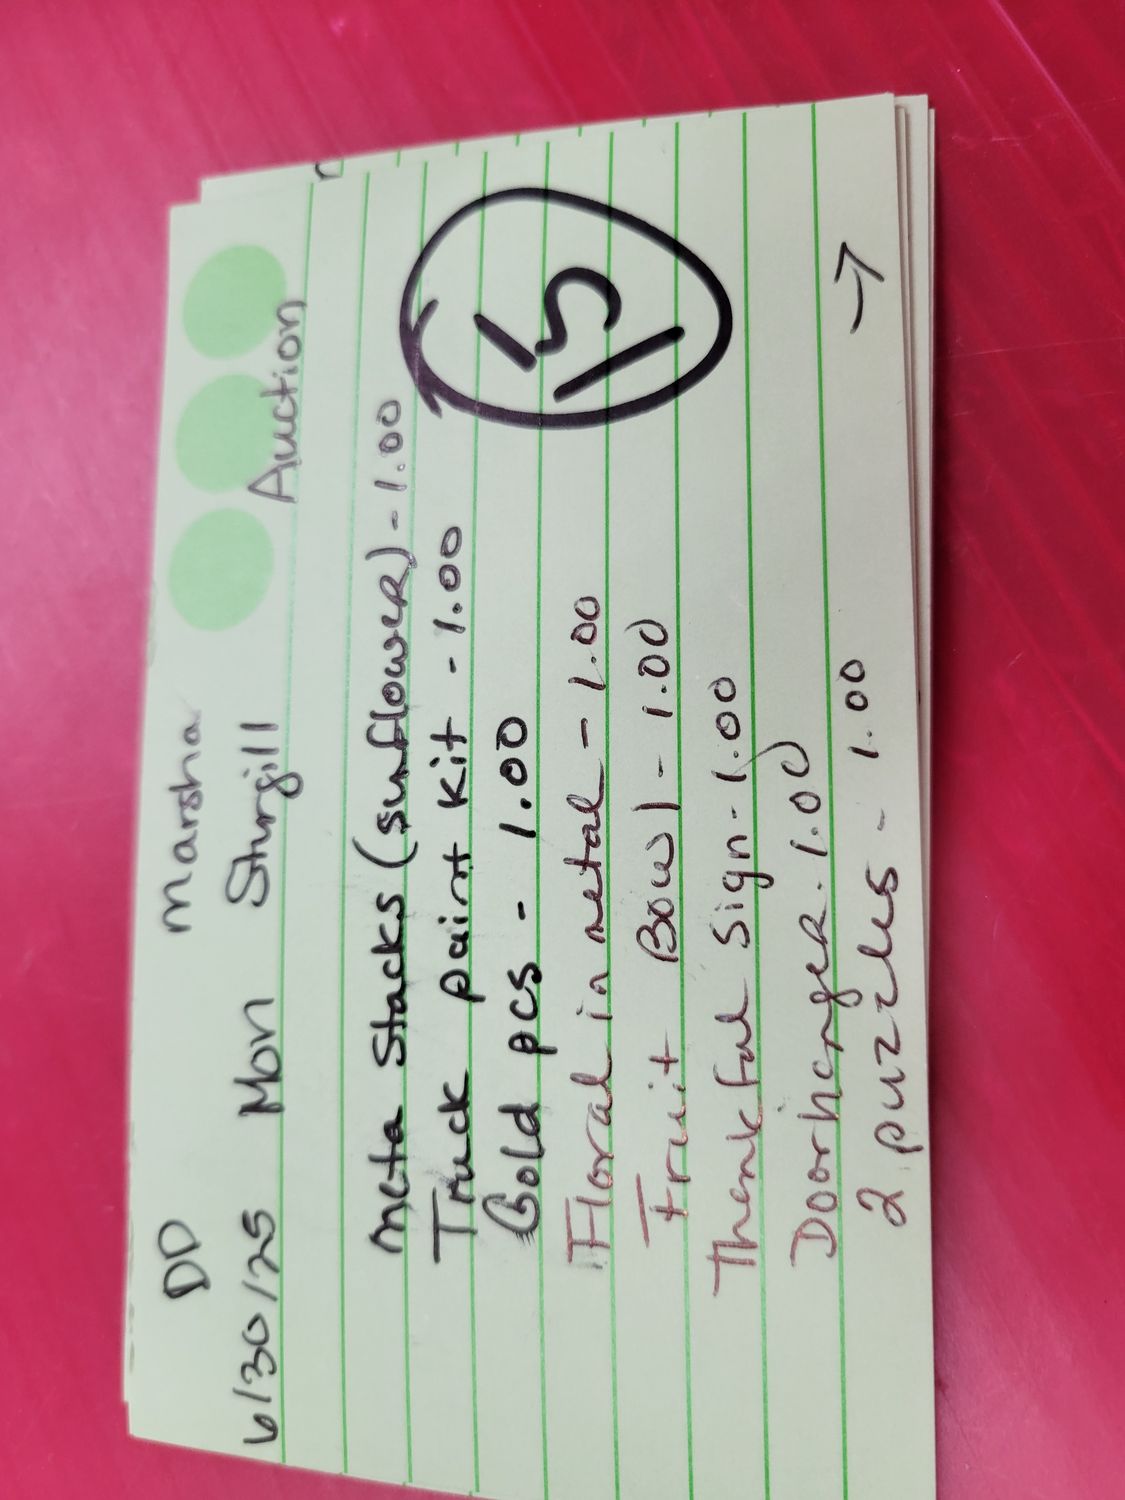 DD Marsha
6/30/25 Mon Sturgill Auction
Meta Stacks (sunflower) - 1.00
Truck paint Kit - 1.00
Gold pcs - 1.00
Floral in metal - 1.00
Fruit Bowl - 1.00
Thankful Sign - 1.00
Doorhanger. 1.00
2 puzzles - 1.00 →